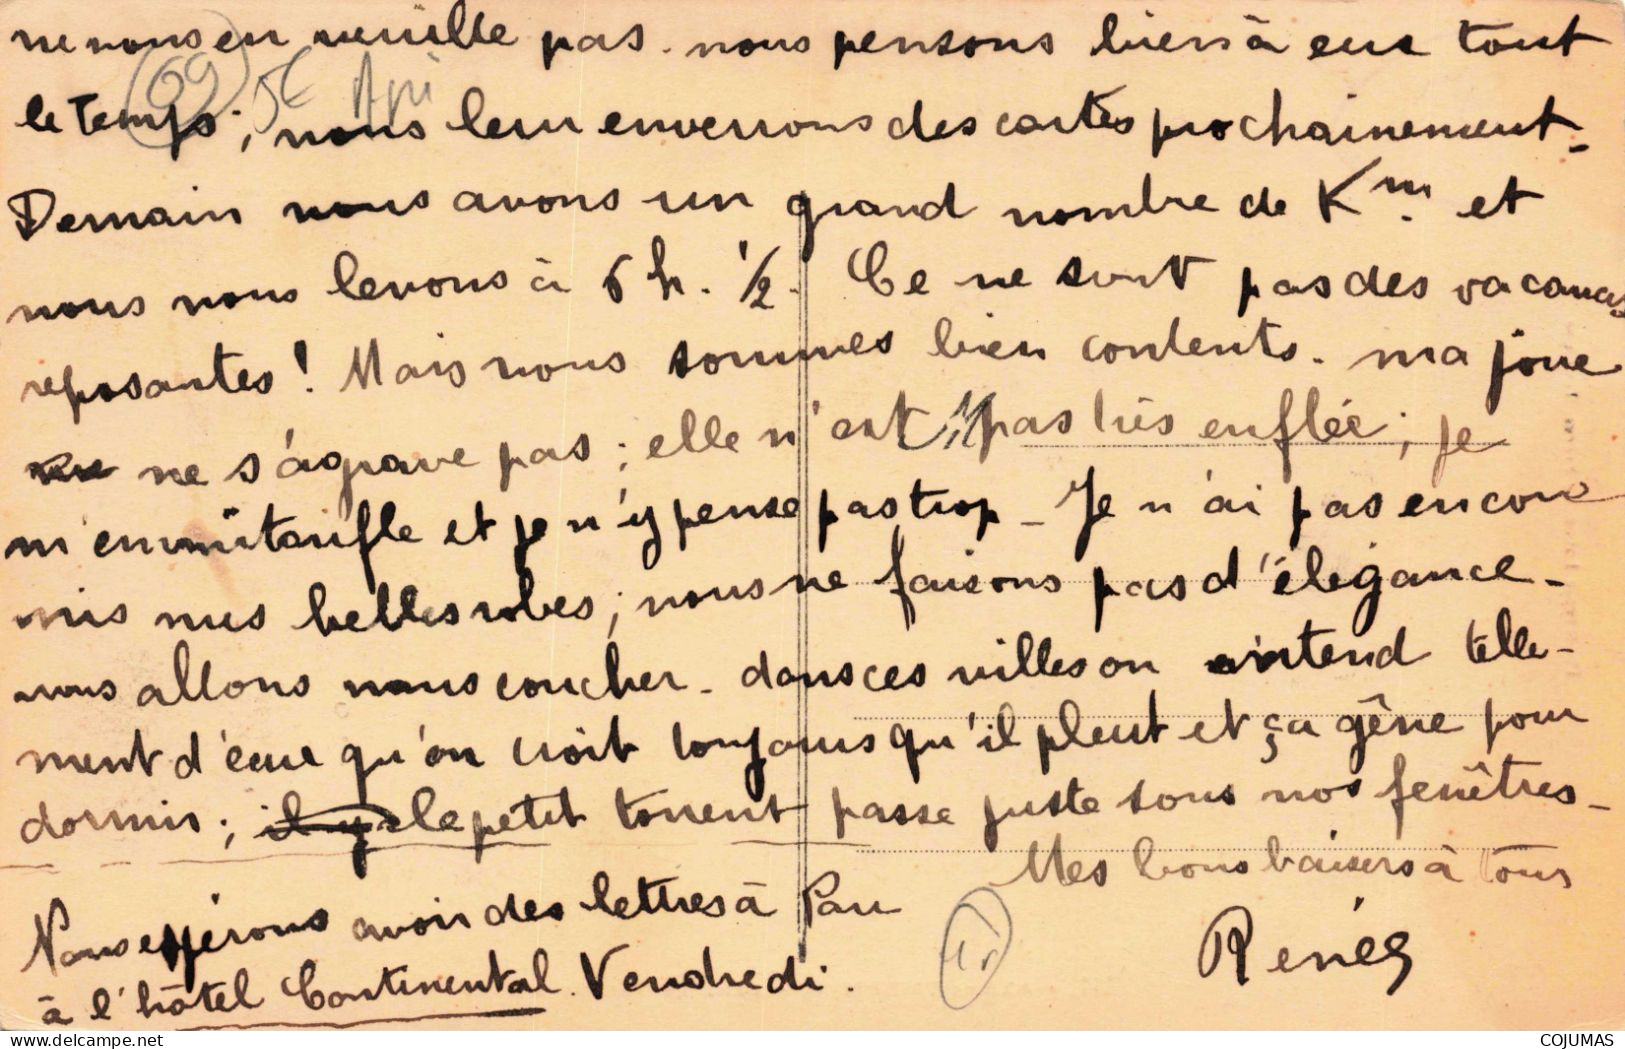 ne nous en veuille pas. nous pensons bien à eux tout
le Temps; nous leur enverrons des cartes prochainement -
Demain nous avons un grand nombre de Km. et
nous nous levons à 6 h. 1/2. Ce ne sont pas des vacances
reposantes! Mais nous sommes bien contents. ma joue
ne s'agrave pas; elle n'est pas très enflée; je
m'emmitoufle et je n'y pense pas trop - Je n'ai pas encore
mis mes belles robes; nous ne faisons pas d'élégance -
nous allons nous coucher - dans ces villes on entend telle-
ment d'eau qu'on croit toujours qu'il pleut et ça gêne pour
dormir; il y a le petit torrent passe juste sous nos fenêtres -
Mes bons baisers à tous
Renée
Nous espérons avoir des lettres à Pau
à l'hôtel Continental. Vendredi.
69 5€ Api
delcampe.net
COJUMAS